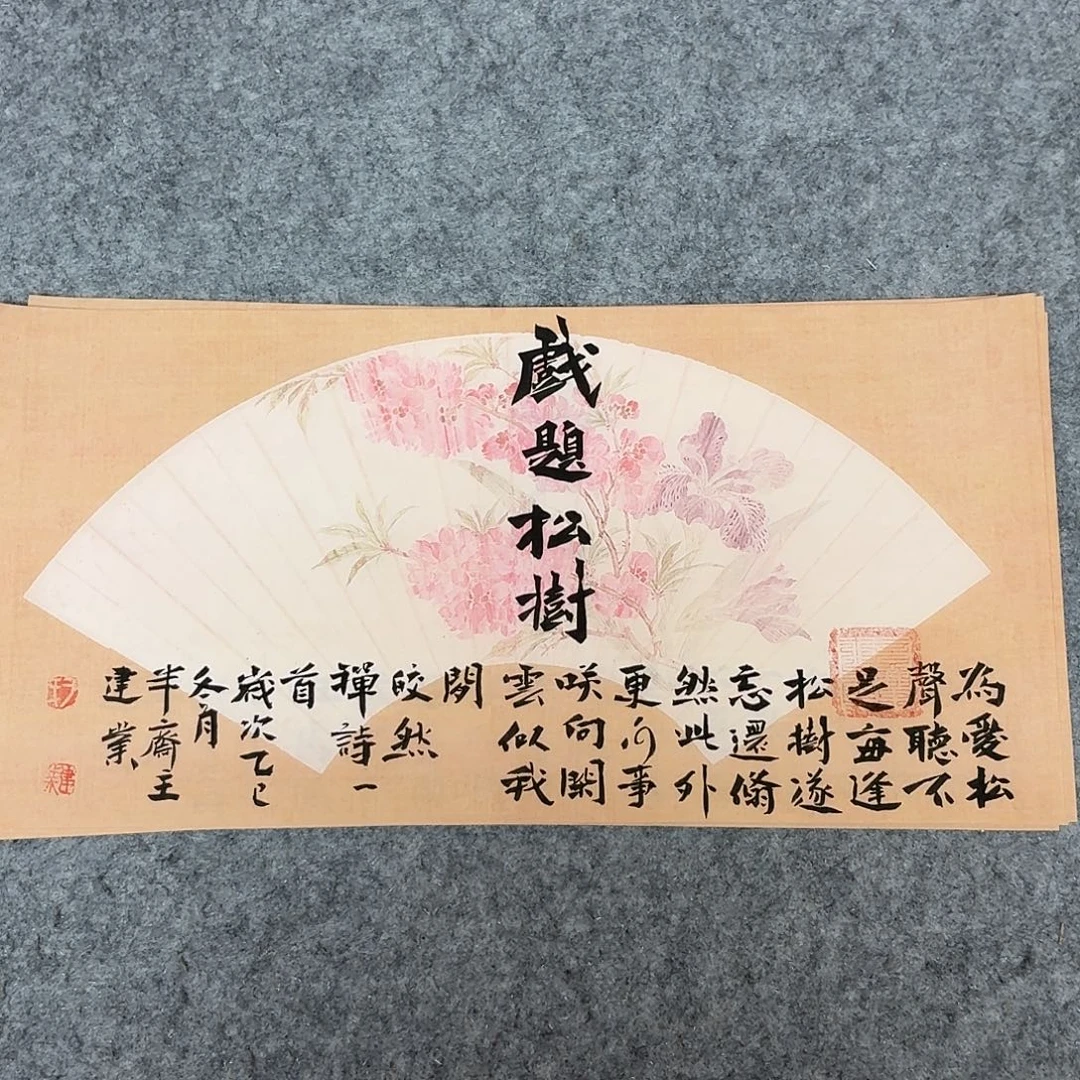 戲題松樹
為愛松
聲聽不
足每逢
松樹遂
忘還翛
然此外
更何事
咲向閑
雲似我
閑
皎然
禪詩一
首
歲次乙巳
冬月
半齋主
建業